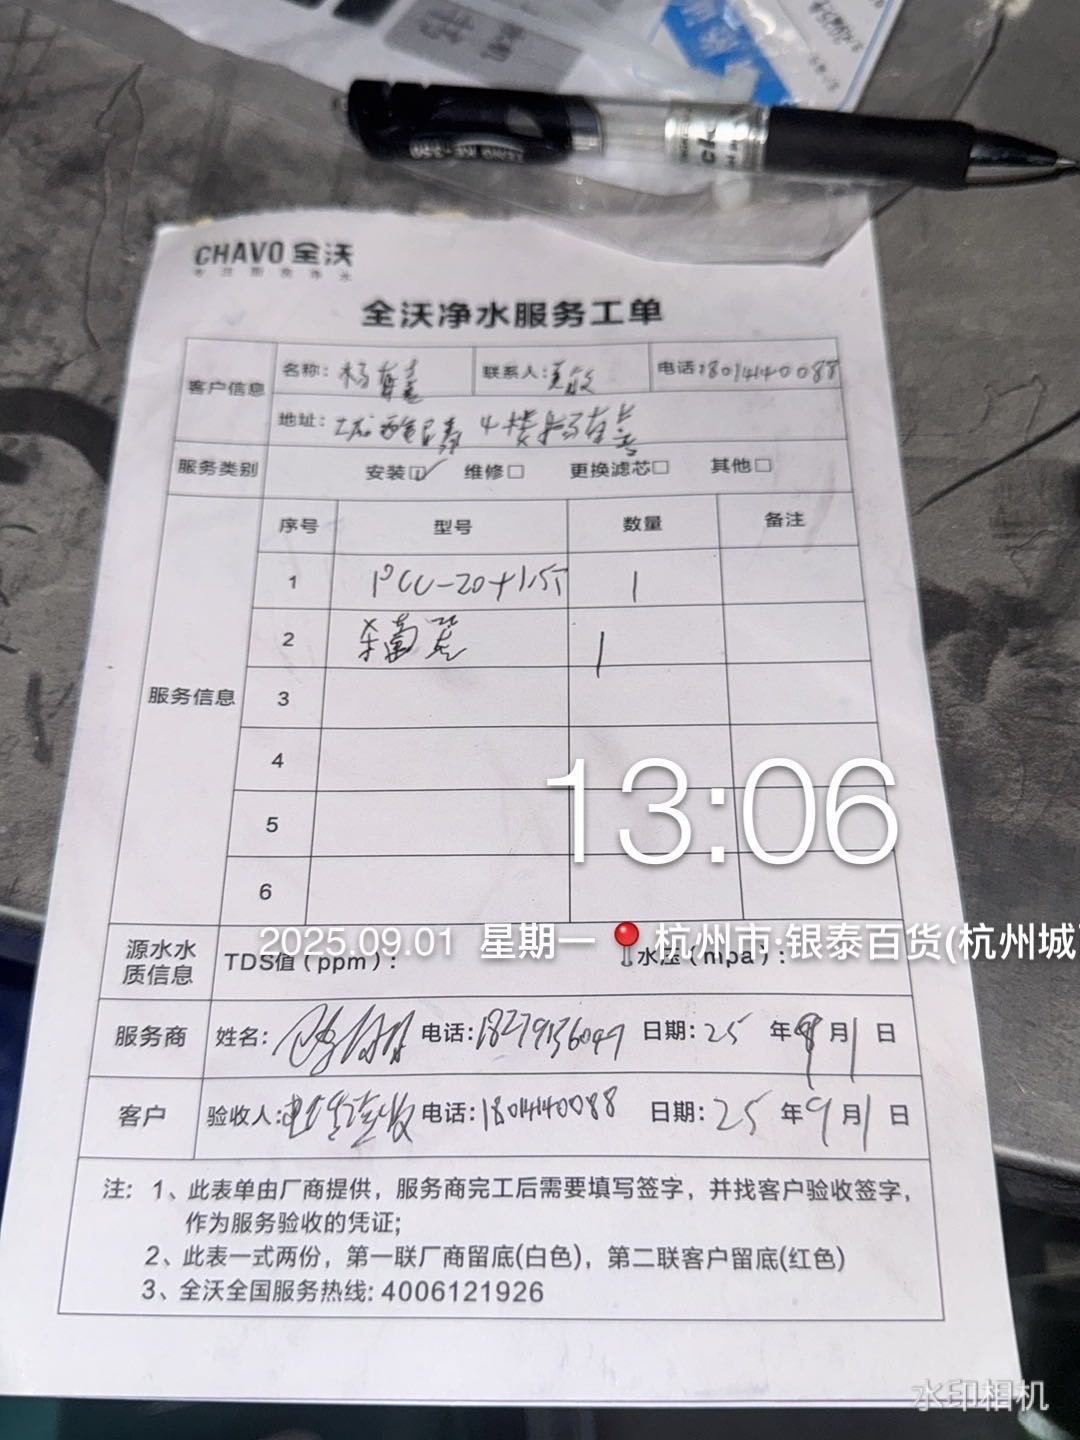 CHAVO 全沃
专注厨房净水
全沃净水服务工单
客户信息 名称: 杨有喜 联系人: 电话:18014140088
地址: 城西银泰 4楼杨有喜
服务类别 安装☑ 维修□ 更换滤芯□ 其他□
服务信息
序号 型号 数量 备注
1 1
2 杀菌器 1
3
4
5
6
13:06
2025.09.01 星期一 📍杭州市·银泰百货(杭州城
源水水质信息 TDS值（ppm）: 水压（mpa）:
服务商 姓名: 电话:18279536049 日期: 25 年 9 月 1 日
客户 验收人: 电话:18014140088 日期: 25 年 9 月 1 日
注: 1、此表单由厂商提供，服务商完工后需要填写签字，并找客户验收签字，
作为服务验收的凭证;
2、此表一式两份，第一联厂商留底(白色)，第二联客户留底(红色)
3、全沃全国服务热线: 4006121926
水印相机